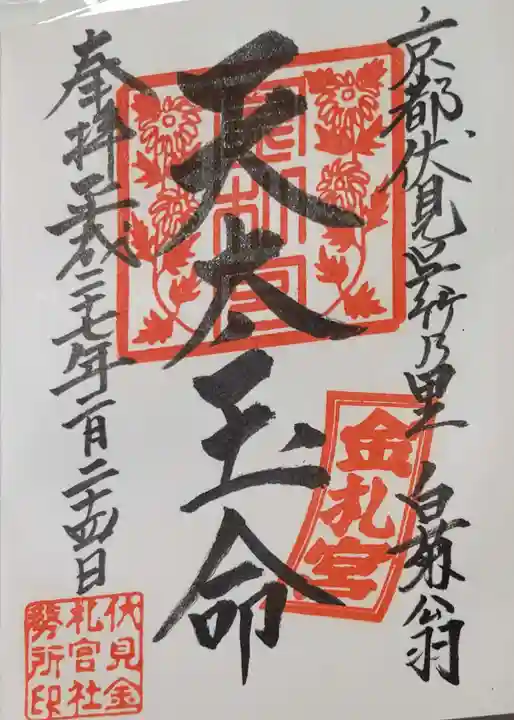 京都伏見呉竹乃里 白菊翁
天太玉命
金札宮
奉拝 平成二十七年二月二十四日
金札宮
伏見金
札宮社
務所印